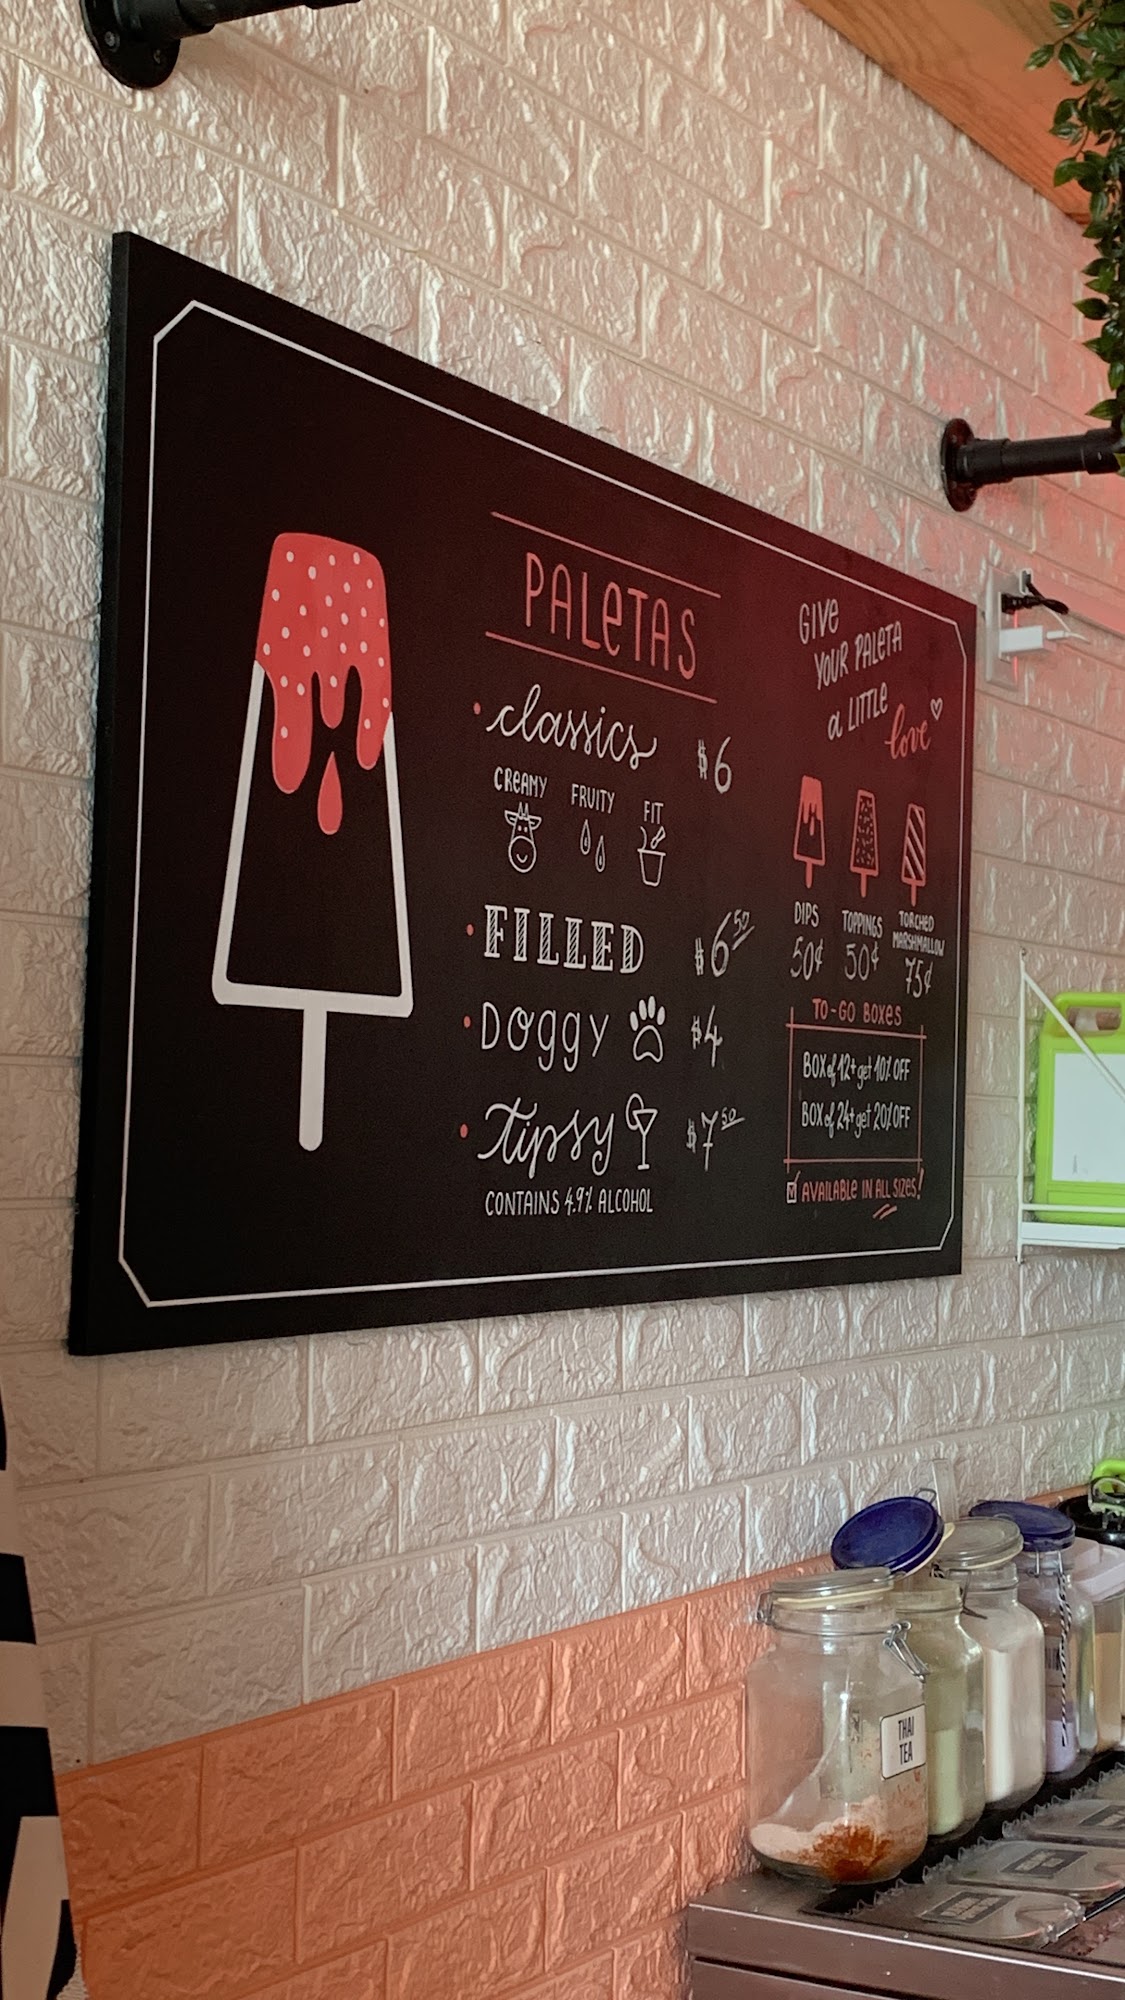 PALETAS
classics $6
CREAMY FRUITY FIT
FILLED $6⁵⁰
DOggY $4
tipsy $7⁵⁰
CONTAINS 4.9% ALCOHOL
GIVE
YOUR PALETA
a LITTLE
love
DIPS TOPPINGS TORCHED
MARSHMALLOW
50¢ 50¢ 75¢
TO-GO BOXES
BOX of 12+ get 10% OFF
BOX of 24+ get 20% OFF
AVAILABLE IN ALL SIZES!
THAI
TEA